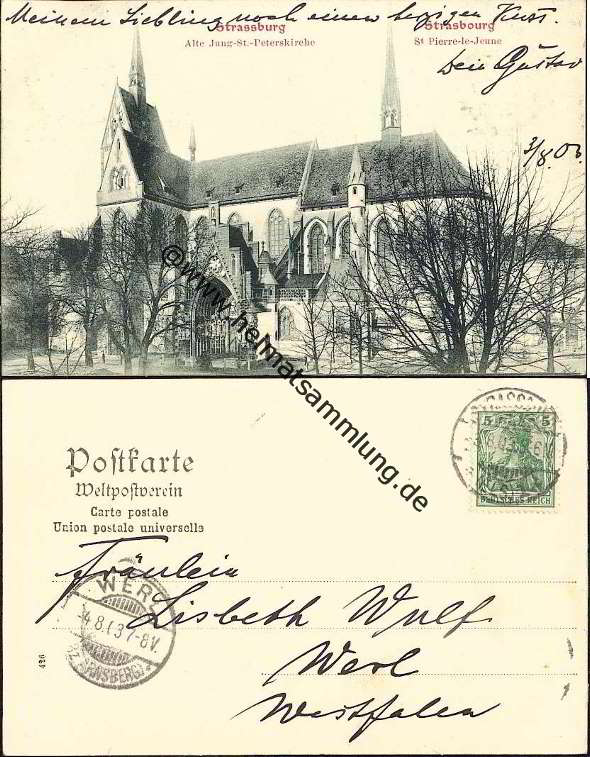 Meinem Liebling noch einen herzigen Kuss.
Dein Gustav
3/8.03.
Strassburg
Alte Jung-St.-Peterskirche
Strasbourg
St Pierre-le-Jeune
@www.heimatsammlung.de
Postkarte
Weltpostverein
Carte postale
Union postale universelle
5 5
DEUTSCHES REICH
Fräulein
Lisbeth Wulf
Werl
Westfalen
WERL
4.8.03 7-8V.
BZ. ARNSBERG
436